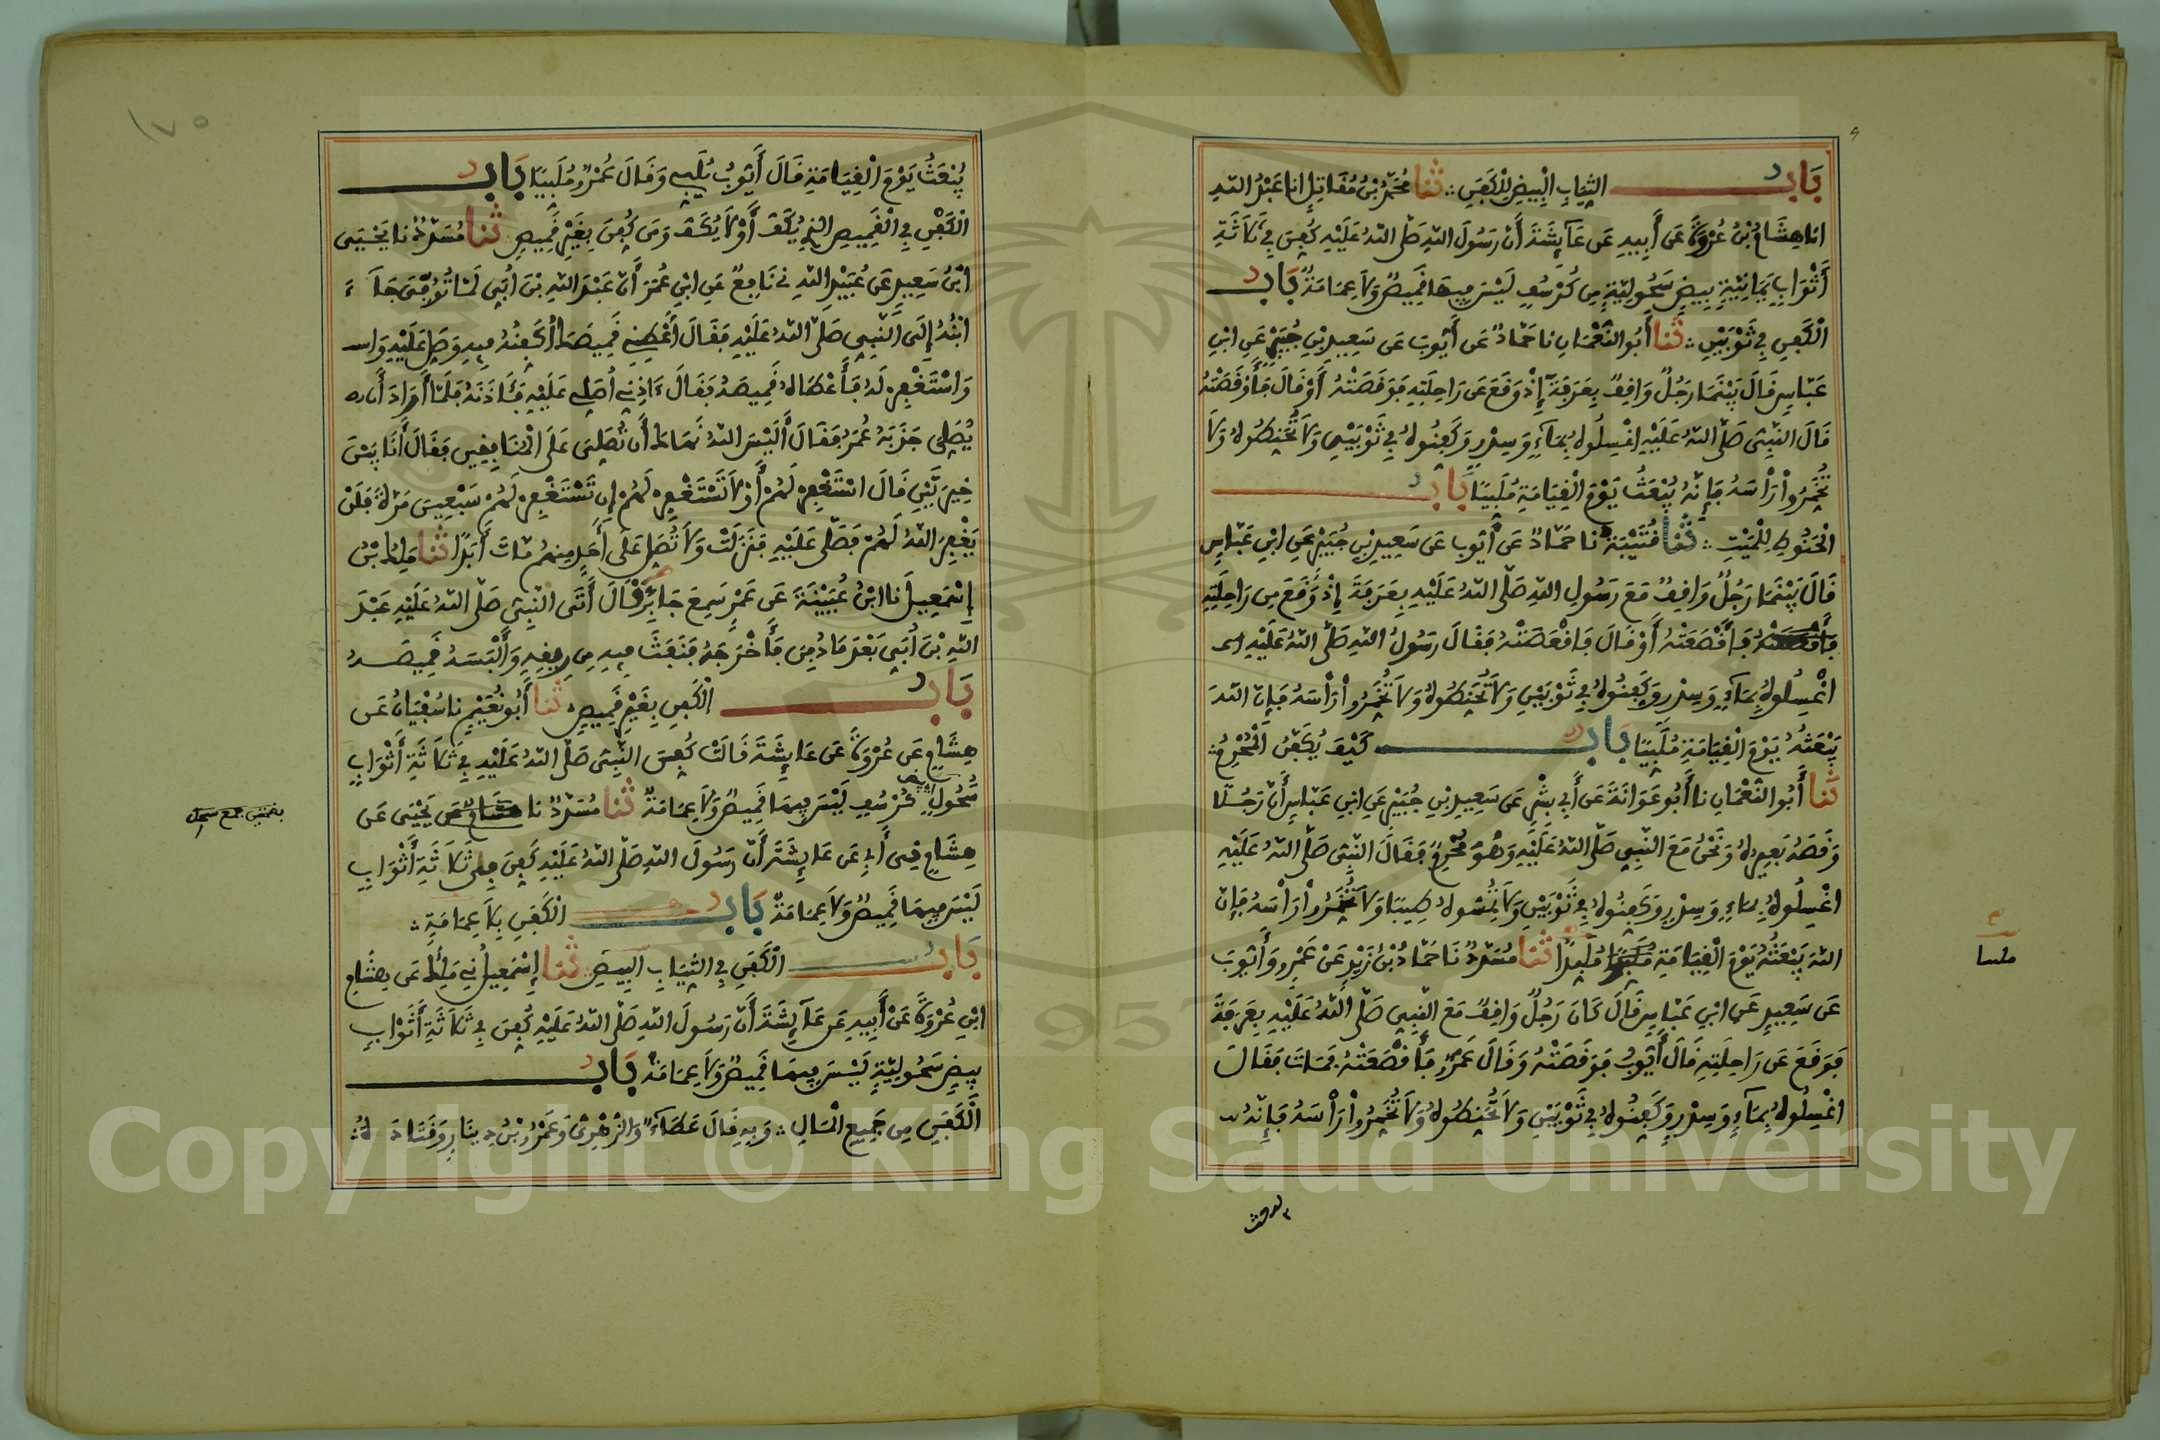 بَابُ الثِّيَابِ الْبِيضِ لِلْكَفَنِ ثنا مُحَمَّدُ بْنُ مُقَاتِلٍ انا عَبْدُ اللهِ
انا هِشَامُ بْنُ عُرْوَةَ عَنْ أَبِيهِ عَنْ عَائِشَةَ أَنَّ رَسُولَ اللهِ صَلَّى اللهُ عَلَيْهِ كُفِّنَ فِي ثَلَاثَةِ
أَثْوَابٍ يَمَانِيَةٍ بِيضٍ سَحُولِيَّةٍ مِنْ كُرْسُفٍ لَيْسَ فِيهَا قَمِيصٌ وَلَا عِمَامَةٌ بَابُ
الْكَفَنِ فِي ثَوْبَيْنِ ثنا أَبُو النُّعْمَانِ نا حَمَّادٌ عَنْ أَيُّوبَ عَنْ سَعِيدِ بْنِ جُبَيْرٍ عَنِ ابْنِ
عَبَّاسٍ قَالَ بَيْنَمَا رَجُلٌ وَاقِفٌ بِعَرَفَةَ إِذْ وَقَعَ عَنْ رَاحِلَتِهِ فَوَقَصَتْهُ أَوْ قَالَ فَأَوْقَصَتْهُ
قَالَ النَّبِيُّ صَلَّى اللهُ عَلَيْهِ اغْسِلُوهُ بِمَاءٍ وَسِدْرٍ وَكَفِّنُوهُ فِي ثَوْبَيْنِ وَلَا تُحَنِّطُوهُ وَلَا
تُخَمِّرُوا رَأْسَهُ فَإِنَّهُ يُبْعَثُ يَوْمَ الْقِيَامَةِ مُلَبِّيًا بَابُ
الْحَنُوطِ لِلْمَيِّتِ ثنا قُتَيْبَةُ نا حَمَّادٌ عَنْ أَيُّوبَ عَنْ سَعِيدِ بْنِ جُبَيْرٍ عَنِ ابْنِ عَبَّاسٍ
قَالَ بَيْنَمَا رَجُلٌ وَاقِفٌ مَعَ رَسُولِ اللهِ صَلَّى اللهُ عَلَيْهِ بِعَرَفَةَ إِذْ وَقَعَ مِنْ رَاحِلَتِهِ
فَأَقْصَعَتْهُ أَوْ قَالَ فَاقْعَصَتْهُ فَقَالَ رَسُولُ اللهِ صَلَّى اللهُ عَلَيْهِ
اغْسِلُوهُ بِمَاءٍ وَسِدْرٍ وَكَفِّنُوهُ فِي ثَوْبَيْنِ وَلَا تُحَنِّطُوهُ وَلَا تُخَمِّرُوا رَأْسَهُ فَإِنَّ اللهَ
يَبْعَثُهُ يَوْمَ الْقِيَامَةِ مُلَبِّيًا بَابُ كَيْفَ يُكَفَّنُ الْمُحْرِمُ
ثنا أَبُو النُّعْمَانِ نا أَبُو عَوَانَةَ عَنْ أَبِي بِشْرٍ عَنْ سَعِيدِ بْنِ جُبَيْرٍ عَنِ ابْنِ عَبَّاسٍ أَنَّ رَجُلًا
وَقَصَهُ بَعِيرُهُ وَنَحْنُ مَعَ النَّبِيِّ صَلَّى اللهُ عَلَيْهِ وَهُوَ مُحْرِمٌ فَقَالَ النَّبِيُّ صَلَّى اللهُ عَلَيْهِ
اغْسِلُوهُ بِمَاءٍ وَسِدْرٍ وَكَفِّنُوهُ فِي ثَوْبَيْنِ وَلَا تُمِسُّوهُ طِيبًا وَلَا تُخَمِّرُوا رَأْسَهُ فَإِنَّ
اللهَ يَبْعَثُهُ يَوْمَ الْقِيَامَةِ مُلَبِّدًا ثنا مُسَدَّدٌ نَا حَمَّادُ بْنُ زَيْدٍ عَنْ عَمْرٍو وَأَيُّوبَ
عَنْ سَعِيدٍ عَنِ ابْنِ عَبَّاسٍ قَالَ كَانَ رَجُلٌ وَاقِفٌ مَعَ النَّبِيِّ صَلَّى اللهُ عَلَيْهِ بِعَرَفَةَ
فَوَقَعَ عَنْ رَاحِلَتِهِ قَالَ أَيُّوبُ فَوَقَصَتْهُ وَقَالَ عَمْرٌو فَأَقْصَعَتْهُ فَمَاتَ فَقَالَ
اغْسِلُوهُ بِمَاءٍ وَسِدْرٍ وَكَفِّنُوهُ فِي ثَوْبَيْنِ وَلَا تُحَنِّطُوهُ وَلَا تُخَمِّرُوا رَأْسَهُ فَإِنَّهُ
١٧٥
يُبْعَثُ يَوْمَ الْقِيَامَةِ قَالَ أَيُّوبُ يُلَبِّي وَقَالَ عَمْرٌو مُلَبِّيًا بَابُ
الْكَفَنِ فِي الْقَمِيصِ الذِي يُكَفُّ أَوْ لَا يُكَفُّ وَمَنْ كُفِّنَ بِغَيْرِ قَمِيصٍ ثنا مُسَدَّدٌ نا يَحْيَى
ابْنُ سَعِيدٍ عَنْ عُبَيْدِ اللهِ نِي نَافِعٌ عَنِ ابْنِ عُمَرَ أَنَّ عَبْدَ اللهِ بْنَ أُبَيٍّ لَمَّا تُوُفِّيَ جَاءَ
ابْنُهُ إِلَى النَّبِيِّ صَلَّى اللهُ عَلَيْهِ فَقَالَ أَعْطِنِي قَمِيصَكَ أُكَفِّنْهُ فِيهِ وَصَلِّ عَلَيْهِ
وَاسْتَغْفِرْ لَهُ فَأَعْطَاهُ قَمِيصَهُ فَقَالَ ءَاذِنِّي أُصَلِّي عَلَيْهِ فَآذَنَهُ فَلَمَّا أَرَادَ أَنْ
يُصَلِّيَ جَذَبَهُ عُمَرُ فَقَالَ أَلَيْسَ اللهُ نَهَاكَ أَنْ تُصَلِّيَ عَلَى الْمُنَافِقِينَ فَقَالَ أَنَا بَيْنَ
خِيرَتَيْنِ قَالَ اسْتَغْفِرْ لَهُمْ أَوْ لَا تَسْتَغْفِرْ لَهُمْ إِنْ تَسْتَغْفِرْ لَهُمْ سَبْعِينَ مَرَّةً فَلَنْ
يَغْفِرَ اللهُ لَهُمْ فَصَلَّى عَلَيْهِ فَنَزَلَتْ وَلَا تُصَلِّ عَلَى أَحَدٍ مِنْهُمْ مَاتَ أَبَدًا ثنا مَالِكُ بْنُ
إِسْمَعِيلَ نا ابْنُ عُيَيْنَةَ عَنْ عَمْرٍو سَمِعَ جَابِرًا قَالَ أَتَى النَّبِيُّ صَلَّى اللهُ عَلَيْهِ عَبْدَ
اللهِ بْنَ أُبَيٍّ بَعْدَ مَا دُفِنَ فَأَخْرَجَهُ فَنَفَثَ فِيهِ مِنْ رِيقِهِ وَأَلْبَسَهُ قَمِيصَهُ
بَابُ الْكَفَنِ بِغَيْرِ قَمِيصٍ ثنا أَبُو نُعَيْمٍ نا سُفْيَانُ عَنْ
هِشَامٍ عَنْ عُرْوَةَ عَنْ عَائِشَةَ قَالَتْ كُفِّنَ النَّبِيُّ صَلَّى اللهُ عَلَيْهِ فِي ثَلَاثَةِ أَثْوَابٍ
سُحُولٍ كُرْسُفٍ لَيْسَ فِيهَا قَمِيصٌ وَلَا عِمَامَةٌ ثنا مُسَدَّدٌ نا يَحْيَى عَنْ
بضمتين جمع سحل
هِشَامٍ نِي أَبِي عَنْ عَائِشَةَ أَنَّ رَسُولَ اللهِ صَلَّى اللهُ عَلَيْهِ كُفِّنَ فِي ثَلَاثَةِ أَثْوَابٍ
لَيْسَ فِيهَا قَمِيصٌ وَلَا عِمَامَةٌ بَابُ الْكَفَنِ بِلَا عِمَامَةٍ
بَابُ الْكَفَنِ فِي الثِّيَابِ الْبِيضِ ثنا إِسْمَعِيلُ نِي مَالِكٌ عَنْ هِشَامِ
ابْنِ عُرْوَةَ عَنْ أَبِيهِ عَنْ عَائِشَةَ أَنَّ رَسُولَ اللهِ صَلَّى اللهُ عَلَيْهِ كُفِّنَ فِي ثَلَاثَةِ أَثْوَابٍ
بِيضٍ سَحُولِيَّةٍ لَيْسَ فِيهَا قَمِيصٌ وَلَا عِمَامَةٌ بَابُ
الْكَفَنِ مِنْ جَمِيعِ الْمَالِ وَبِهِ قَالَ عَطَاءٌ وَالزُّهْرِيُّ وَعَمْرُو بْنُ دِينَارٍ وَقَتَادَةُ
Copyright © King Saud University
957